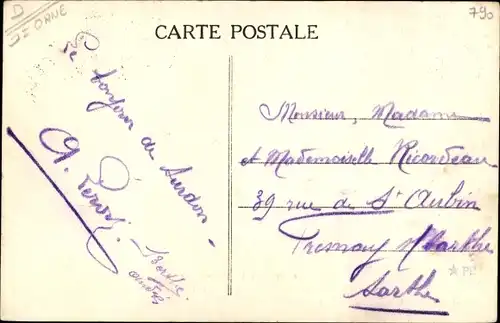 D
ORNE
790
CARTE POSTALE
Le bonjour de Surdon -
Monsieur, Madame
et Mademoiselle Ricordeau
39 rue de St Aubin
Fresnay s/ Sarthe
Sarthe